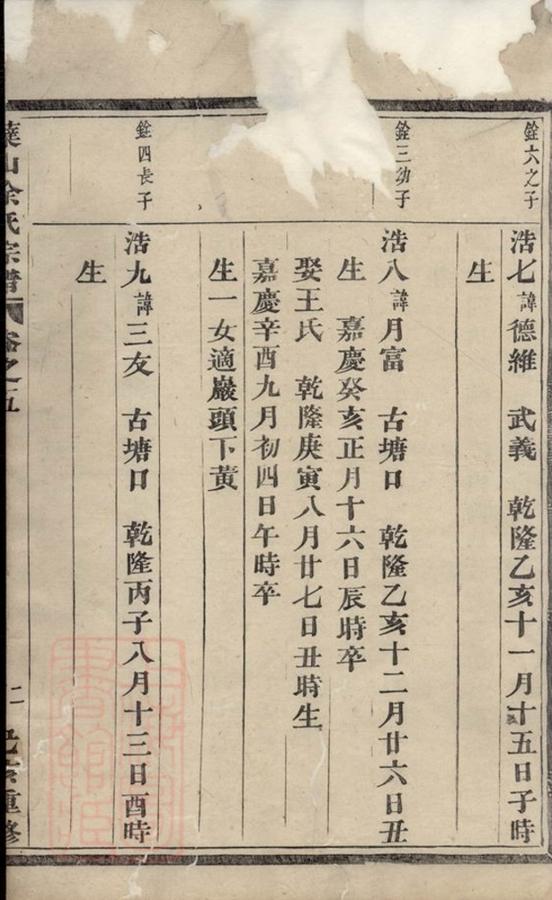 銓六之子
浩七諱德維　武義　乾隆乙亥十一月十五日子時
生
銓三幼子
浩八諱月富　古塘口　乾隆乙亥十二月廿六日丑
生　嘉慶癸亥正月十六日辰時卒
娶王氏　乾隆庚寅八月廿七日丑時生
嘉慶辛酉九月初四日午時卒
生一女適巖頭下黃
銓四長子
浩九諱三友　古塘口　乾隆丙子八月十三日酉時
生
山余氏宗譜　卷之五　二　重修